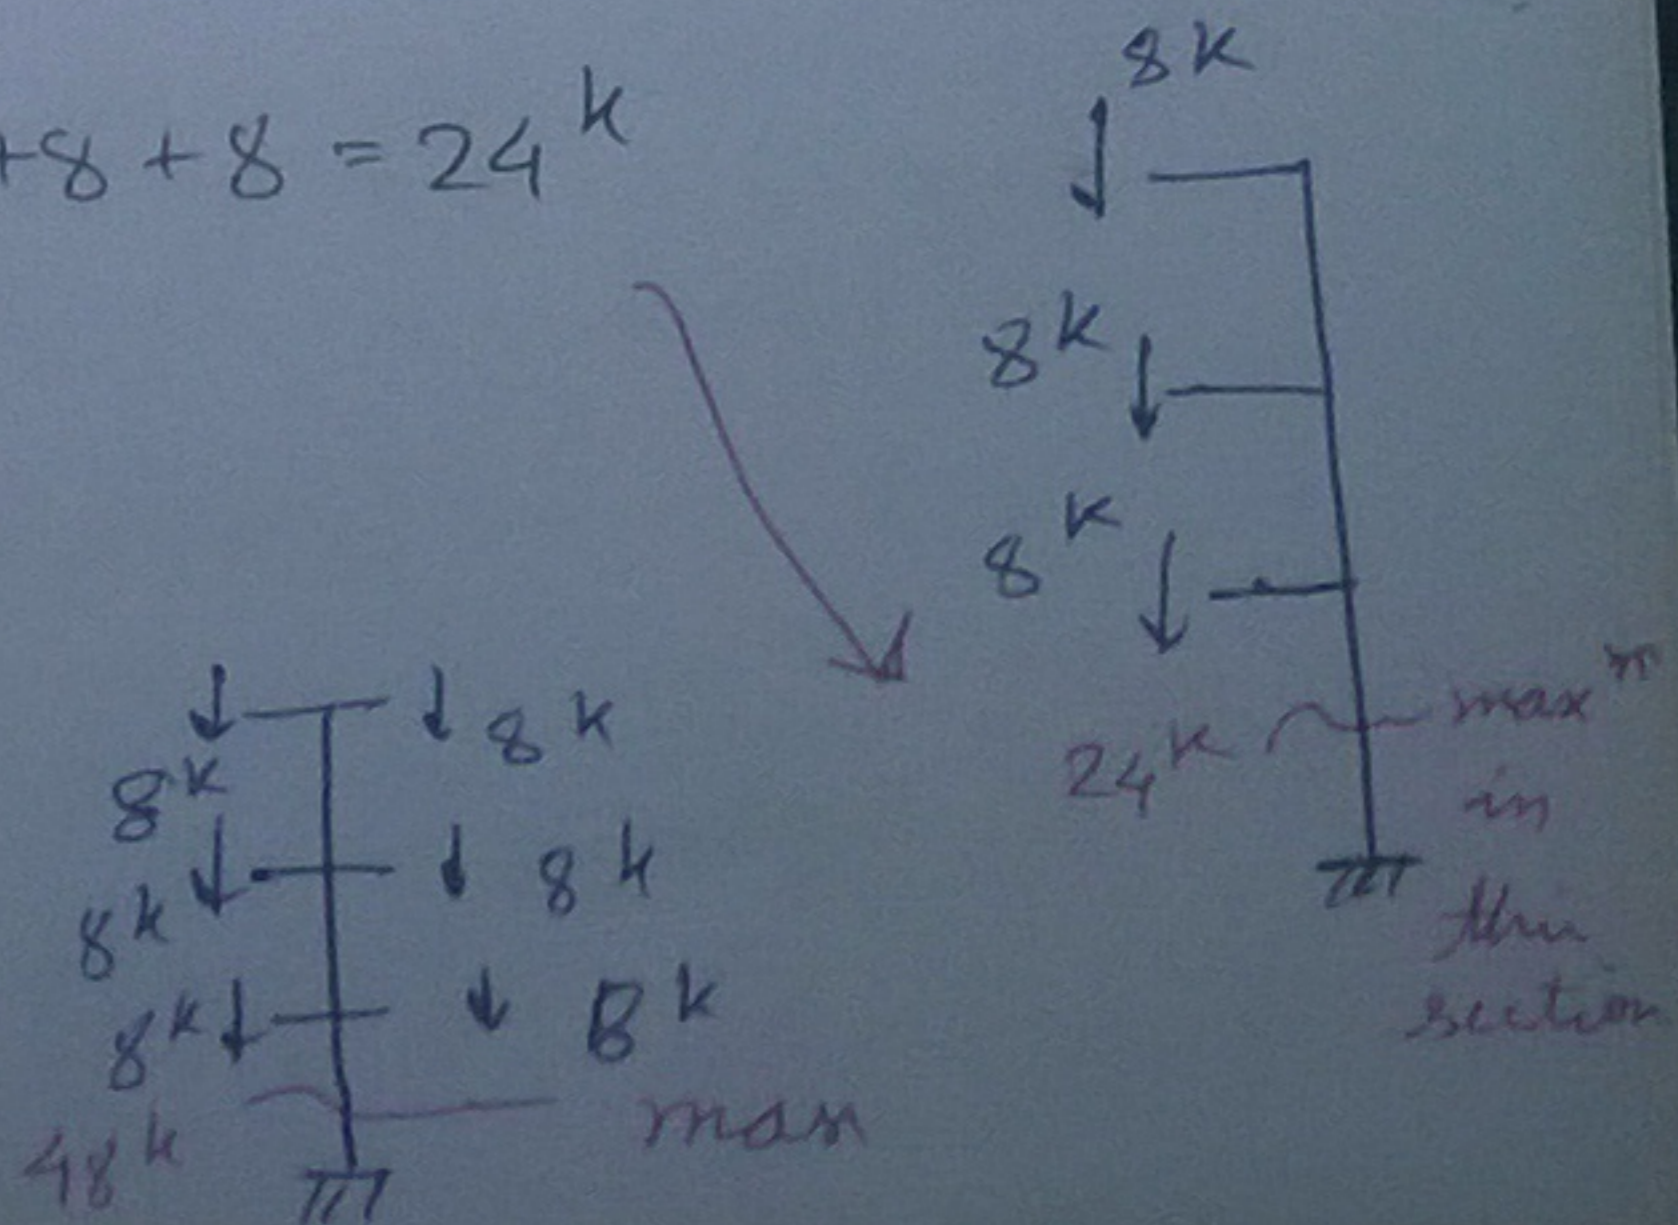 +8 + 8 = 24 k
8 k
8 k
8 k
24 k
max m
in
this
section
8 k
8 k
8 k
8 k
8 k
8 k
48 k
max